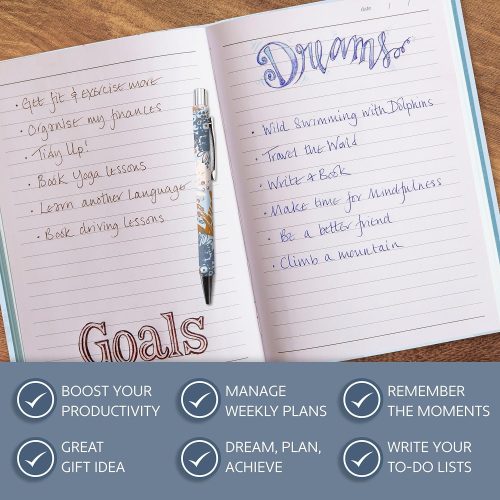 • Get fit & exercise more
• Organise my finances
• Tidy Up!
• Book Yoga lessons
• Learn another Language
• Book driving lessons
Goals
date / /
Dreams
• Wild Swimming with Dolphins
• Travel the World
• Write A Book
• Make time for Mindfulness
• Be a better friend
• Climb a mountain
BOOST YOUR
PRODUCTIVITY
MANAGE
WEEKLY PLANS
REMEMBER
THE MOMENTS
GREAT
GIFT IDEA
DREAM, PLAN,
ACHIEVE
WRITE YOUR
TO-DO LISTS